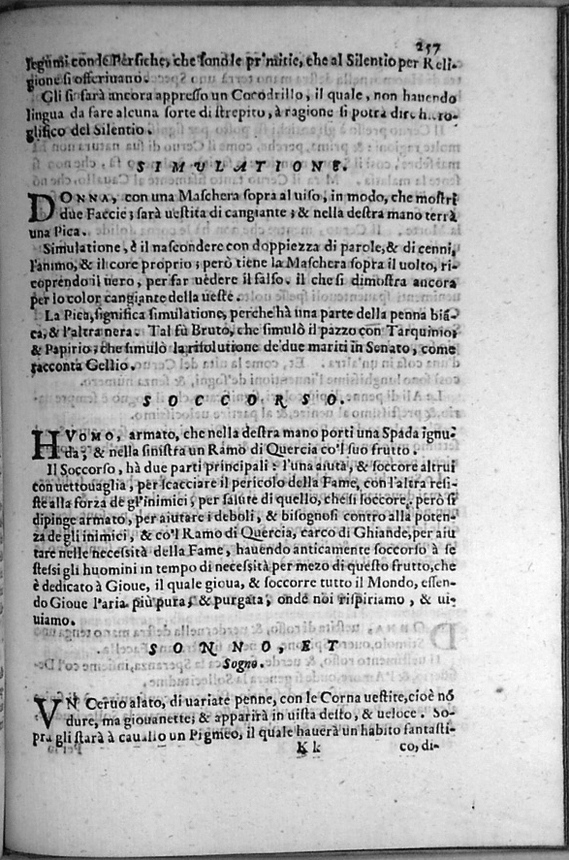 257
legumi con le Persiche, che sono le primitie, che al Silentio per Reli-
gione si offeriuano.
Gli si farà ancora appresso un Cocodrillo, il quale, non hauendo
lingua da fare alcuna sorte di strepito, à ragione si potrà dire hiero-
glifico del Silentio.
SIMULATIONE.
DONNA, con una Maschera sopra al uiso, in modo, che mostri
due Faccie; sarà uestita di cangiante; & nella destra mano terrà
una Pica.
Simulatione, è il nascondere con doppiezza di parole, & di cenni,
l'animo, & il core proprio; però tiene la Maschera sopra il uolto, ri-
coprendo il uero, per far uedere il falso. il che si dimostra ancora
per lo color cangiante della ueste.
La Pica, significa simulatione, perche hà una parte della penna biã-
ca, & l'altra nera. Tal fù Bruto, che simulò il pazzo con Tarquinio;
& Papirio, che simulò la risolutione de' due mariti in Senato, come
racconta Gellio.
SOCCORSO.
HVOMO, armato, che nella destra mano porti una Spada ignu-
da; & nella sinistra un Ramo di Quercia co'l suo frutto.
Il Soccorso, hà due parti principali: l'una aiuta, & soccore altrui
con uettouaglia, per scacciare il pericolo della Fame, con l'altra resi-
ste alla forza de gl'inimici, per salute di quello, che si soccore, però si
dipinge armato, per aiutare i deboli, & bisognosi contro alla poten-
za de gli inimici, & co'l Ramo di Quercia, carco di Ghiande, per aiu
tare nelle necessità della Fame, hauendo anticamente soccorso à se
stessi gli huomini in tempo di necessità per mezo di questo frutto, che
è dedicato à Gioue, il quale gioua, & soccorre tutto il Mondo, essen-
do Gioue l'aria più pura, & purgata, onde noi rispiriamo, & ui-
uiamo.
SONNO, ET
Sogno.
VN Ceruo alato, di uariate penne, con le Corna uestite, cioè nõ
dure, ma giouanette; & apparirà in uista desto, & ueloce. So-
pra gli starà à cauallo un Pigmeo, il quale hauerà un habito fantasti-
K k
co, di-